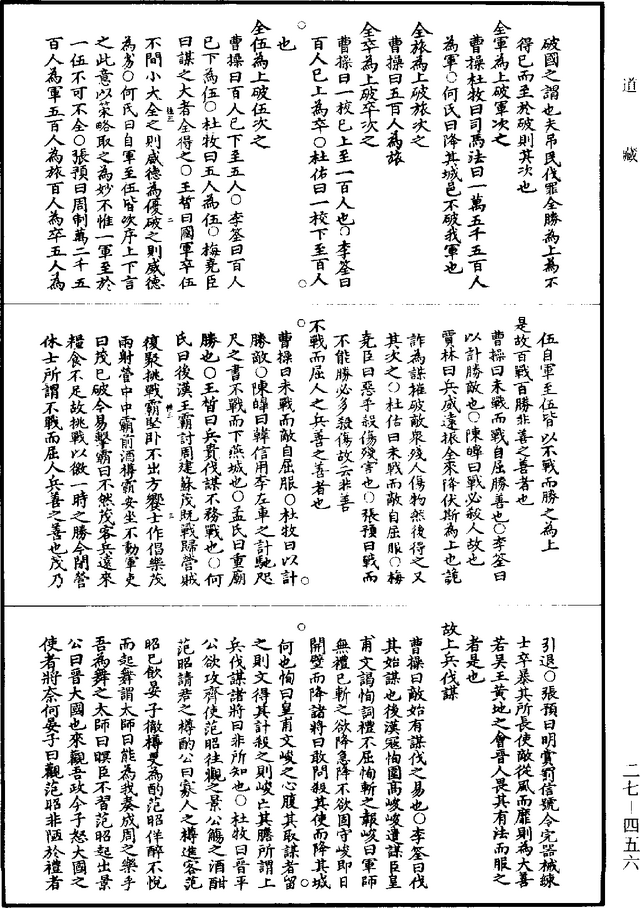 道藏
破國之謂也夫吊民伐罪全勝為上為不
得已而至於破則其次也
全軍為上破軍次之
曹操杜牧曰司馬法曰一萬五千五百人
為軍○何氏曰降其城邑不破我軍也
全旅為上破旅次之
曹操曰五百人為旅
全卒為上破卒次之
曹操曰一校已上至一百人也○李筌曰
百人已上為卒○杜佑曰一校下至百人
也
全伍為上破伍次之
曹操曰百人已下至五人○李筌曰百人
已下為伍○杜牧曰五人為伍○梅堯臣
曰謀之大者全得之○王晳曰國軍卒伍
不間小大全之則威德為優破之則威德
為劣○何氏曰自軍至伍皆次序上下言
之此意以策略取之為妙不惟一軍至於
一伍不可不全○張預曰周制萬二千五
百人為軍五百人為旅百人為卒五人為
伍自軍至伍皆以不戰而勝之為上
是故百戰百勝非善之善者也
曹操曰未戰而戰自屈勝善也○李筌曰
以計勝敵也○陳皥曰戰必殺人故也
賈林曰兵威遠振全來降伏斯為上也詭
詐為謀摧破敵衆殘人傷物然後得之又
其次之○杜佑曰未戰而敵自屈服○梅
堯臣曰惡乎殺傷殘害也○張預曰戰而
不能勝必多殺傷故云非善
不戰而屈人之兵善之善者也
曹操曰未戰而敵自屈服○杜牧曰以計
勝敵○陳皥曰韓信用李左車之計馳咫
尺之書不戰而下燕城也○孟氏曰重廟
勝也○王晳曰兵貴伐謀不務戰也○何
氏曰後漢王霸討周建蘇茂既戰歸營賊
復聚挑戰霸堅卧不出方饗士作倡樂茂
雨射營中中霸前酒樽霸安坐不動軍吏
曰茂已破今易擊霸曰不然茂客兵遠來
糧食不足故挑戰以徼一時之勝今閉營
休士所謂不戰而屈人兵善之善也茂乃
引退○張預曰明賞罰信號令完器械練
士卒暴其所長使敵從風而靡則為大善
若吴王黄池之會晉人畏其有法而服之
者是也
故上兵伐謀
曹操曰敵始有謀伐之易也○李筌曰伐
其始謀也後漢寇恂圍高峻峻遣謀臣皇
甫文謁恂詞禮不屈恂斬之報峻曰軍師
無禮已斬之欲降急降不欲固守峻即日
開壁而降諸將曰敢問殺其使而降其城
何也恂曰皇甫文峻之心腹其取謀者留
之則文得其計殺之則峻亡其膽所謂上
兵伐謀諸將曰非所知也○杜牧曰晉平
公欲攻齊使范昭往觀之景公觴之酒酣
范昭請君之樽酌公曰寡人之樽進客范
昭已飲晏子徹樽更為酌范昭佯醉不悅
而起舞謂太師曰能為我奏成周之樂乎
吾為舞之太師曰瞑臣不習范昭起出景
公曰晉大國也來觀吾政今子怒大國之
使者將奈何晏子曰觀范昭非陋於禮者
二七—四五六